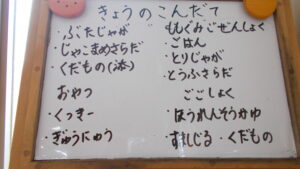 きょうのこんだて
・ぶたじゃが
・じゃこまめさらだ
・くだもの(添)
おやつ
・くっきー
・ぎゅうにゅう
ももぐみごぜんしょく
・ごはん
・とりじゃが
・とうふさらだ
ごごしょく
・ほうれんそうかゆ
・すましじる・くだもの